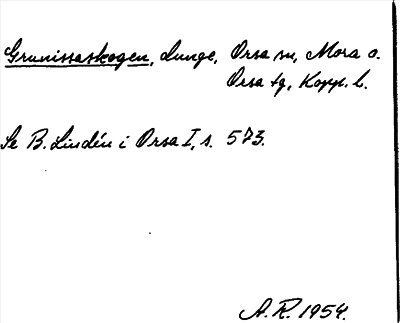 Grunissaskogen, dunge, Orsa sn, Mora o.
Orsa tg, Kopp. l.
Se B. Lindén i Orsa I, s. 573.
A. R. 1954.